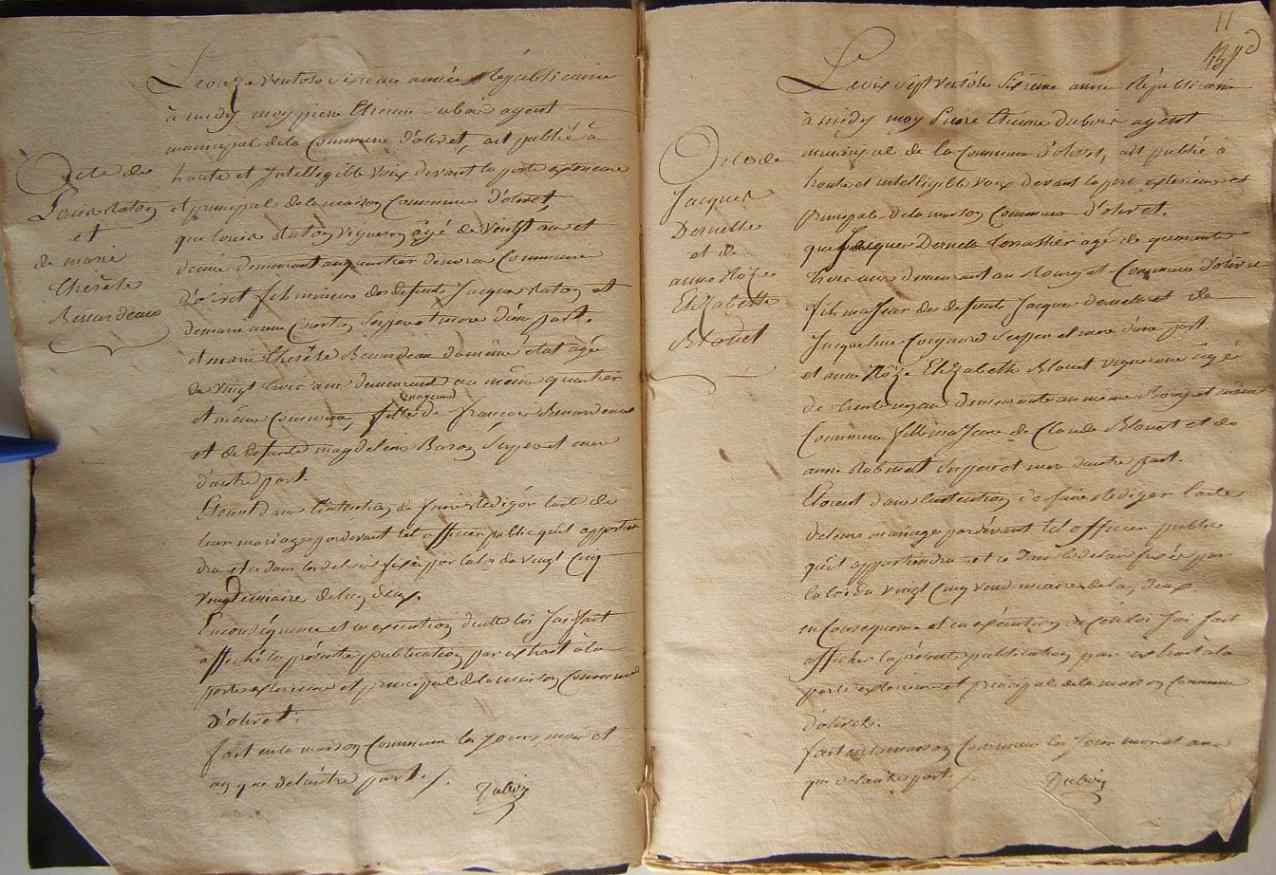 Acte de
Louis Raton
et
de marie
thérèse
Renardeau
Le onze ventose sixieme année Républicaine
à midy moy pierre Etienne Dubois agent
municipal de la Commune d'olivet, ait publié à
haute et Intelligible voix devant la porte exterieure
et principal de la maison Commune d'olivet
que Louis Raton vigneron âgé de vingt ans et
demie demeurant au quartier Commune
d'olivet fils mineur des defunts Jacques Raton et
de marie anne ses pere et mere d'une part.
et marie thérèse Renardeau de même état agée
de vingt ans demeurant au même quartier
et même Commune, fille de françois Renardeau
et de defunte magdeleine Baron ses pere et mere
d'autre part.
Etant dans l'intention de faire rédiger l'acte de
leur mariage pardevant tel officier public qu'il appartien
dra et ce dans les delais fixés par la loi du vingt Cinq
vendemiaire de l'an deux.
En conséquence et en execution de cette loi J'ai fait
affiché la présente publication par extrait à la
porte exterieure et principal de la maison Commune
D'olivet.
fait en la maison Commune les jours mois et
an que de l'autre part ./.
Dubois
11
Acte de
Jacques
Derville
et de
anne Roze
Elizabette
Blouet
Le dix sept ventose Sixieme année Républicaine
à midy moy Pierre Etienne Dubois agent
municipal de la Commune d'olivet, ait publié a
haute et intelligible voix devant la porte exterieure et
principale de la maison Commune d'olivet.
que Jacques agé de quarante
trois ans demeurant au Bourg et Commune d'olivet
fils majeur des defunts Jacques et de
Jacqueline ses pere et mere d'une part.
et anne Roze Elizabeth Blouet vigneronne âgé
de trente demeurante au meme Bourg et même
Commune fille majeure de Claude Blouet et de
anne Robinet ses pere et mere d'autre part.
Etant dans l'intention de faire rediger l'acte
de leur mariage pardevant tel officier public
qu'il appartiendra et ce dans le delai fixés par
la loi du vingt Cinq vendemiaire de l'an deux.
en Consequence et en exécution de cette loi J'ai fait
afficher la présente publication par extrait à la
porte exterieure et principal de la maison Commune
d'olivet.
fait en la maison Commune les jour mois et an
que de l'autre part ./.
Dubois